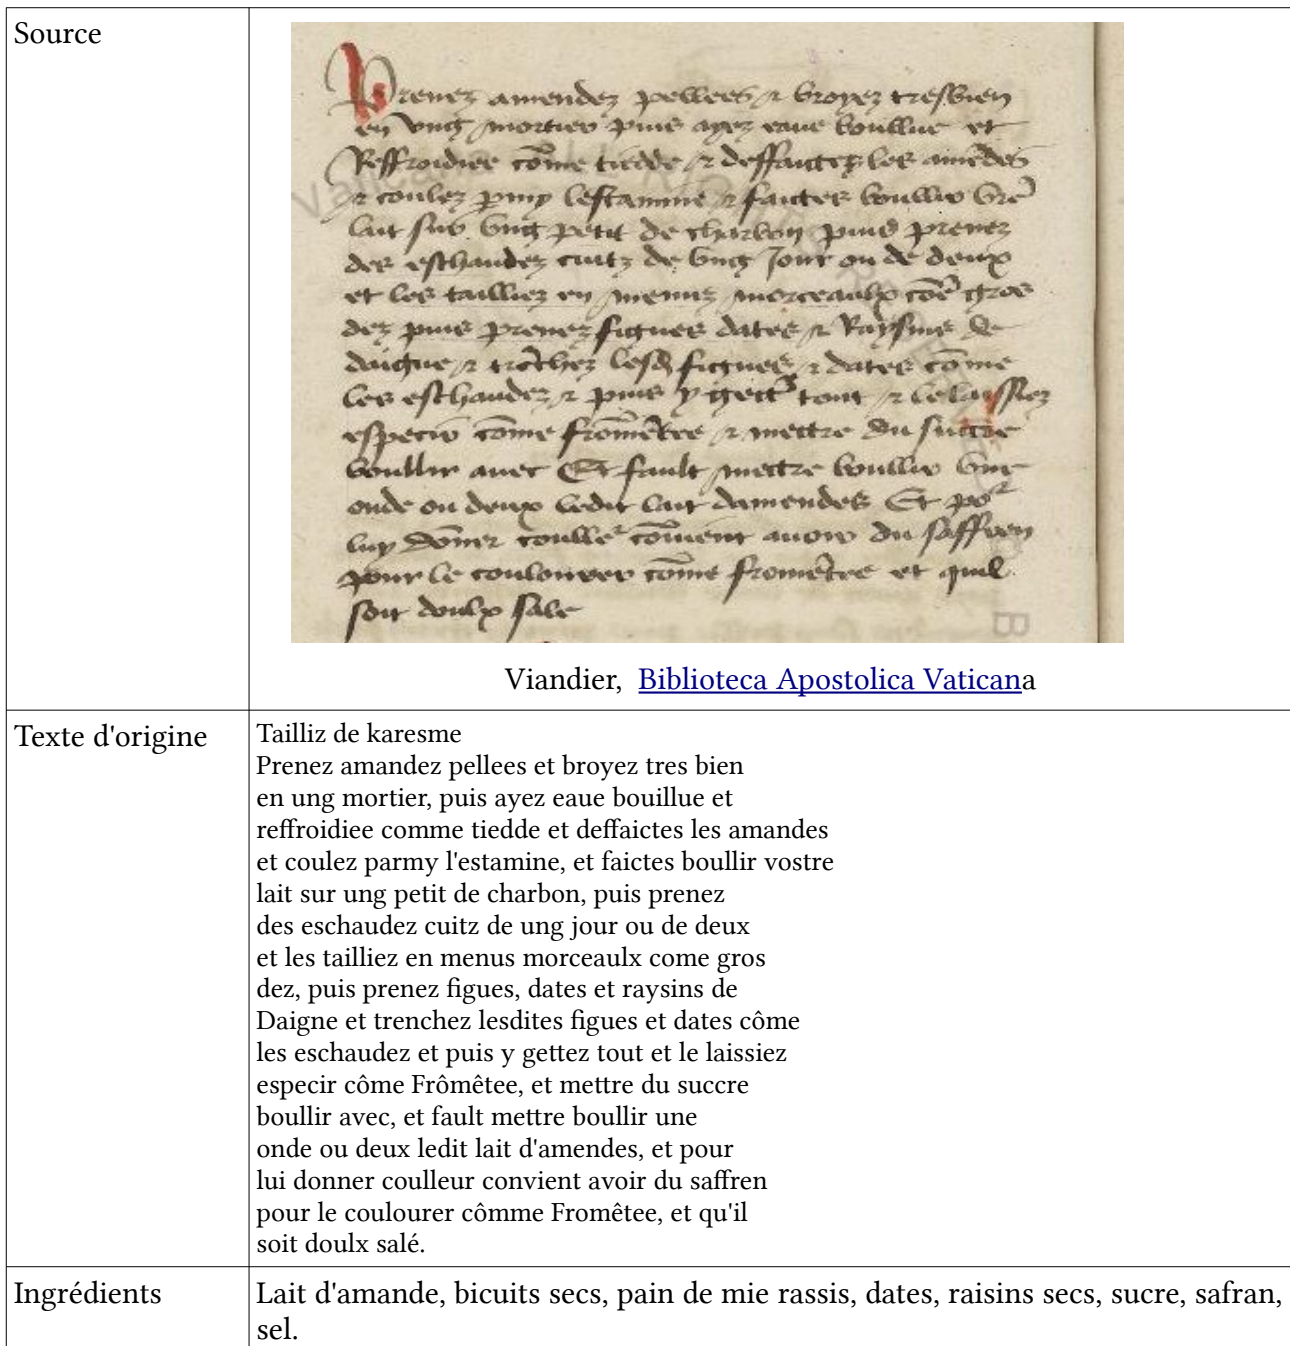 Source
Prenez amendez pellees & broyez tresbien
en ung mortier puis ayez eaue boullue et
Reffroidiee cõme tiedde & deffaictez les amẽdes
& coulez pmy lestamine & faictes boullir vrẽ
lait sur ung petit de charbon puis prenez
des eschaudez cuitz de ung Jour ou de deux
et les tailliez en menuz morceaulx cõe gros
dez puis prenez figues dates & Raysins de
daigne & trẽchez lesd figues & dates cõme
les eschaudez & puis y gett tout & le laissiez
especir cõme fromẽtee & mettre du succre
boullir avec Et fault mettre boullir une
onde ou deux ledit lait damendes Et por
luy dõner couller cõvient avoir du saffren
pour le coulourer cõme fromẽtee et quil
soit doulx sale
Viandier, Biblioteca Apostolica Vaticana
Texte d'origine
Tailliz de karesme
Prenez amandez pellees et broyez tres bien
en ung mortier, puis ayez eaue bouillue et
reffroidiee comme tiedde et deffaictes les amandes
et coulez parmy l'estamine, et faictes boullir vostre
lait sur ung petit de charbon, puis prenez
des eschaudez cuitz de ung jour ou de deux
et les tailliez en menus morceaulx come gros
dez, puis prenez figues, dates et raysins de
Daigne et trenchez lesdites figues et dates côme
les eschaudez et puis y gettez tout et le laissiez
especir côme Frômêtee, et mettre du succre
boullir avec, et fault mettre boullir une
onde ou deux ledit lait d'amendes, et pour
lui donner coulleur convient avoir du saffren
pour le coulourer cômme Fromêtee, et qu'il
soit doulx salé.
Ingrédients
Lait d'amande, bicuits secs, pain de mie rassis, dates, raisins secs, sucre, safran,
sel.